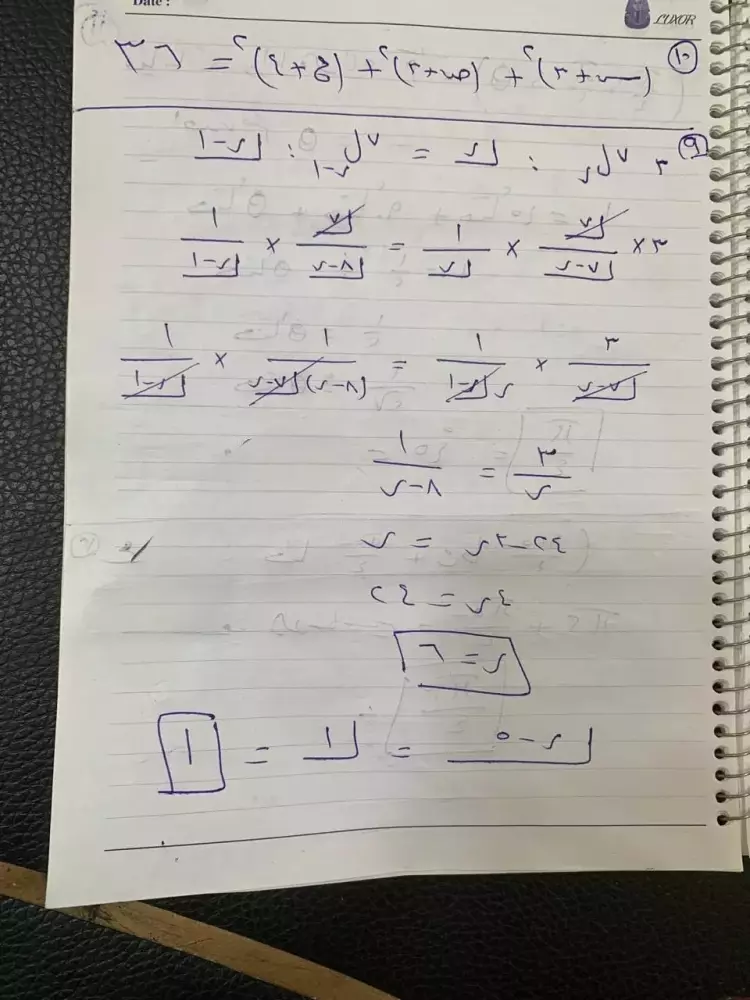 Date :
LUXOR
⑩ (س+٢)² + (ص+٢)² + (ع+٤)² = ٣٦
⑨ ٣ ⁷ل ر : ⌊ر = ⁷ل ر-١ : ⌊ر-١
٣ × ⌊٧/⌊٧-ر × ١/⌊ر = ⌊٧/⌊٨-ر × ١/⌊ر-١
٣/⌊٧-ر × ١/ر⌊ر-١ = ١/(٨-ر)⌊٧-ر × ١/⌊ر-١
٣/ر = ١/٨-ر
٢٤-٣ر = ر
٤ر = ٢٤
ر = ٦
⌊ر-٥ = ⌊١ = ١